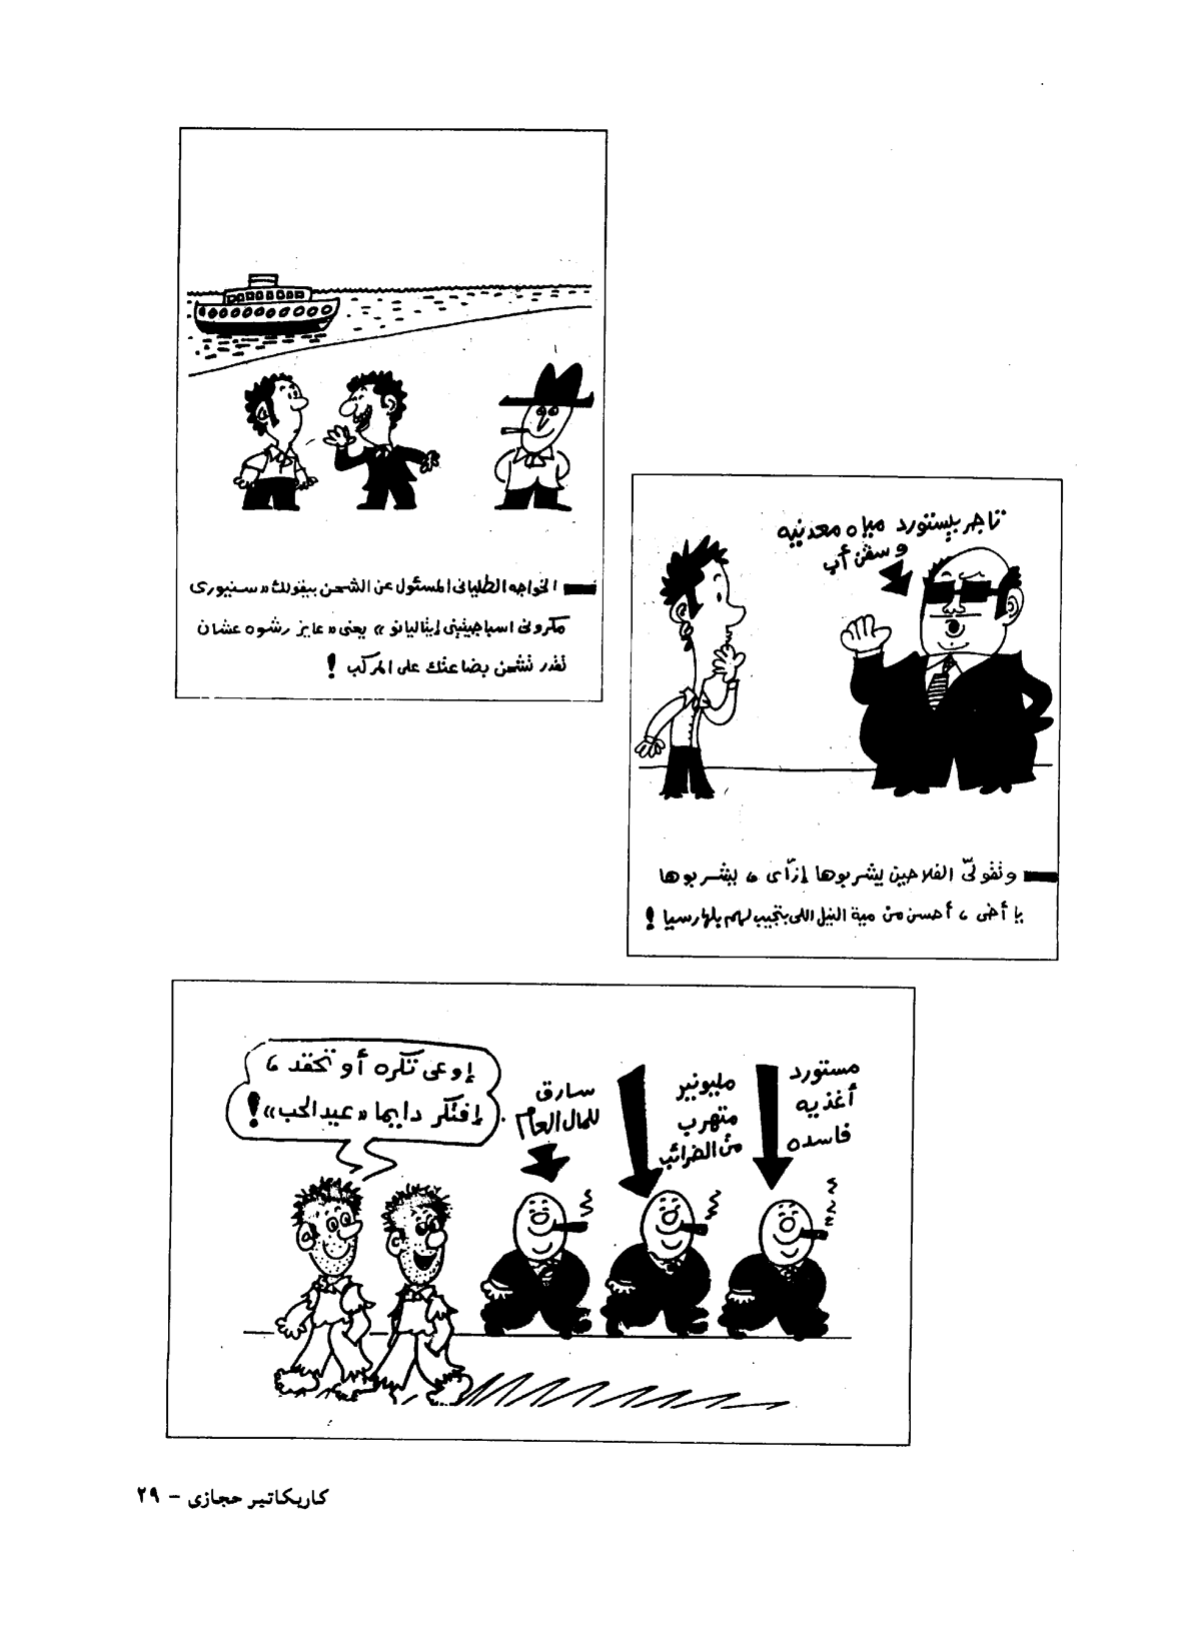 الخواجه الطلياني المسئول عن الشحن بيقولك «سنيوري
مكروني اسباجيتيتي إيتاليانو» يعني «عايز رشوه عشان
نقدر نشحن بضاعتك على المركب !
تاجر بيستورد مياه معدنيه
وسفن أب
وتقولّي الفلاحين يشربوها إزّاي ، يشربوها
يا أخى ، أحسن من مية النيل اللى بتجيب لهم بلهارسيا !
مستورد
أغذيه
فاسده
مليونير
متهرب
من الضرائب
سارق
للمال العام
إوعى تكره أو تحقد ،
إفتكر دايما «عيد الحب» !
كاريكاتير حجازى - ٢٩